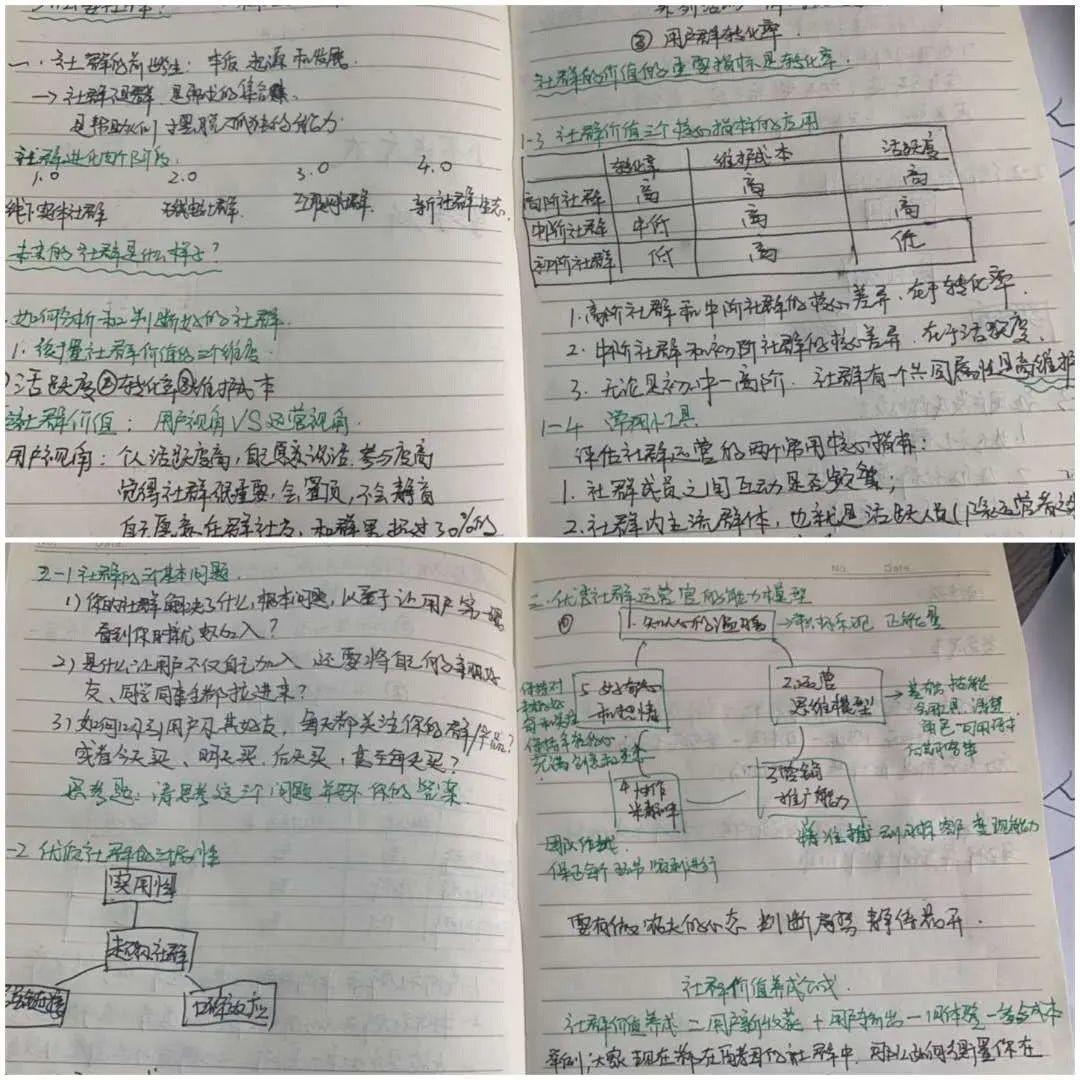 一.社群的前世今生：本质 起源和发展.
→社群
是帮助我们 摆脱孤独的能力
社群进化四个阶段.
1.0 2.0 3.0 4.0
线下实体社群 社群. 互联网社群. 新社群生态.
未来的社群是什么样子？
如何分析和判断好的社群.
1.衡量社群价值的三个维度.
①活跃度②转化率③维护成本
社群价值：用户视角VS运营视角.
用户视角：个人活跃度高，自己愿意说话.参与度高
觉得社群很重要，会置顶，不会静音
自己愿意在群社交，和群里超过30%的
③ 用户群转化率.
社群的价值的重要指标是转化率.
1-3 社群价值三个核心指标的应用
转化率 维护成本 活跃度
高阶社群 高 高 高
中阶社群 中低 高 高
初阶社群 低 高 低
1.高阶社群和中阶社群的核心差异.在于转化率.
2.中阶社群和初阶社群的核心差异.在于活跃度.
3.无论是初-中-高阶.社群有一个共同属性是高维护
1-4 常用小工具
评估社群运营的两个常用核心指标：
1.社群成员之间互动是否频繁；
2.社群内主流群体，也就是活跃人员(除运营者之外
-1社群的三个基本问题.
1)你的社群解决了什么根本问题，以至于让用户第一眼
看到你时就想加入？
2)是什么让用户不仅自己加入 还要将自己的亲朋好
友、同学同事全部拉进来？
3)如何吸引用户及其好友，每天都关注你的群/产品？
或者今天买、明天买.后天买，甚至每天买？
思考题：请思考这三个问题并 你的答案.
-2 优质社群的三属性
实用性
超级社群
强链接
三.优秀社群运营官的能力模型
1. 温情
正能量
5.好奇心
和热情
2.运营
思维模型
4.协作
3.营销
推广能力
团队作战.
保证各个环节顺利进行
精准 到目标客户 变现能力
要有做农夫的心态 判断局势 静待花开.
社群价值养成公式.
社群价值养成=用户新收获+用户新 -旧体验-综合成本
举例，大家现在都在 社群中，那么如何衡量你在